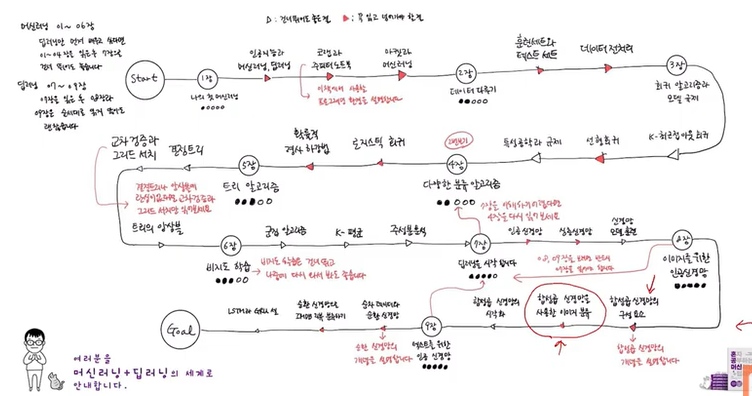 머신러닝 01~06장
딥러닝만 먼저 배우고 싶다면
01~04장을 읽은 후 7장으로
건너 뛰어도 좋습니다
딥러닝 07~09장
△: 건너뛰어도 좋은 절
▶: 꼭 읽고 넘어가야 할 절
Start
1장
나의 첫 머신러닝
인공지능과
머신러닝, 딥러닝
코랩과
주피터 노트북
이 책에서 사용할
프로그래밍 환경을 설명합니다
마켓과
머신러닝
2장
데이터 다루기
훈련 세트와
테스트 세트
데이터 전처리
3장
회귀 알고리즘과
모델 규제
K-최근접 이웃 회귀
선형 회귀
특성 공학과 규제
4장
다양한 분류 알고리즘
로지스틱 회귀
확률적
경사 하강법
5장
트리 알고리즘
결정 트리
교차 검증과
그리드 서치
결정 트리와 앙상블에
관심이 없으면 교차 검증과
그리드 서치만 읽어보세요
트리의 앙상블
6장
비지도 학습
비지도 학습은 건너 뛰고
나중에 다시 와서 봐도 좋습니다
군집 알고리즘
K-평균
주성분 분석
7장
딥러닝을 시작합니다
7장을 이해하기 어렵다면
4장을 다시 읽어보세요
인공 신경망
심층 신경망
신경망
모델 훈련
8장
이미지를 위한
인공 신경망
합성곱 신경망의
구성 요소
합성곱 신경망의
개념을 설명합니다
합성곱 신경망을
사용한 이미지 분류
합성곱 신경망의
시각화
9장
텍스트를 위한
인공 신경망
순차 데이터와
순환 신경망
순환 신경망의
개념을 설명합니다
순환 신경망으로
IMDB 리뷰 분류하기
LSTM과 GRU 셀
Goal
여러분을
머신러닝+딥러닝의 세계로
안내합니다.